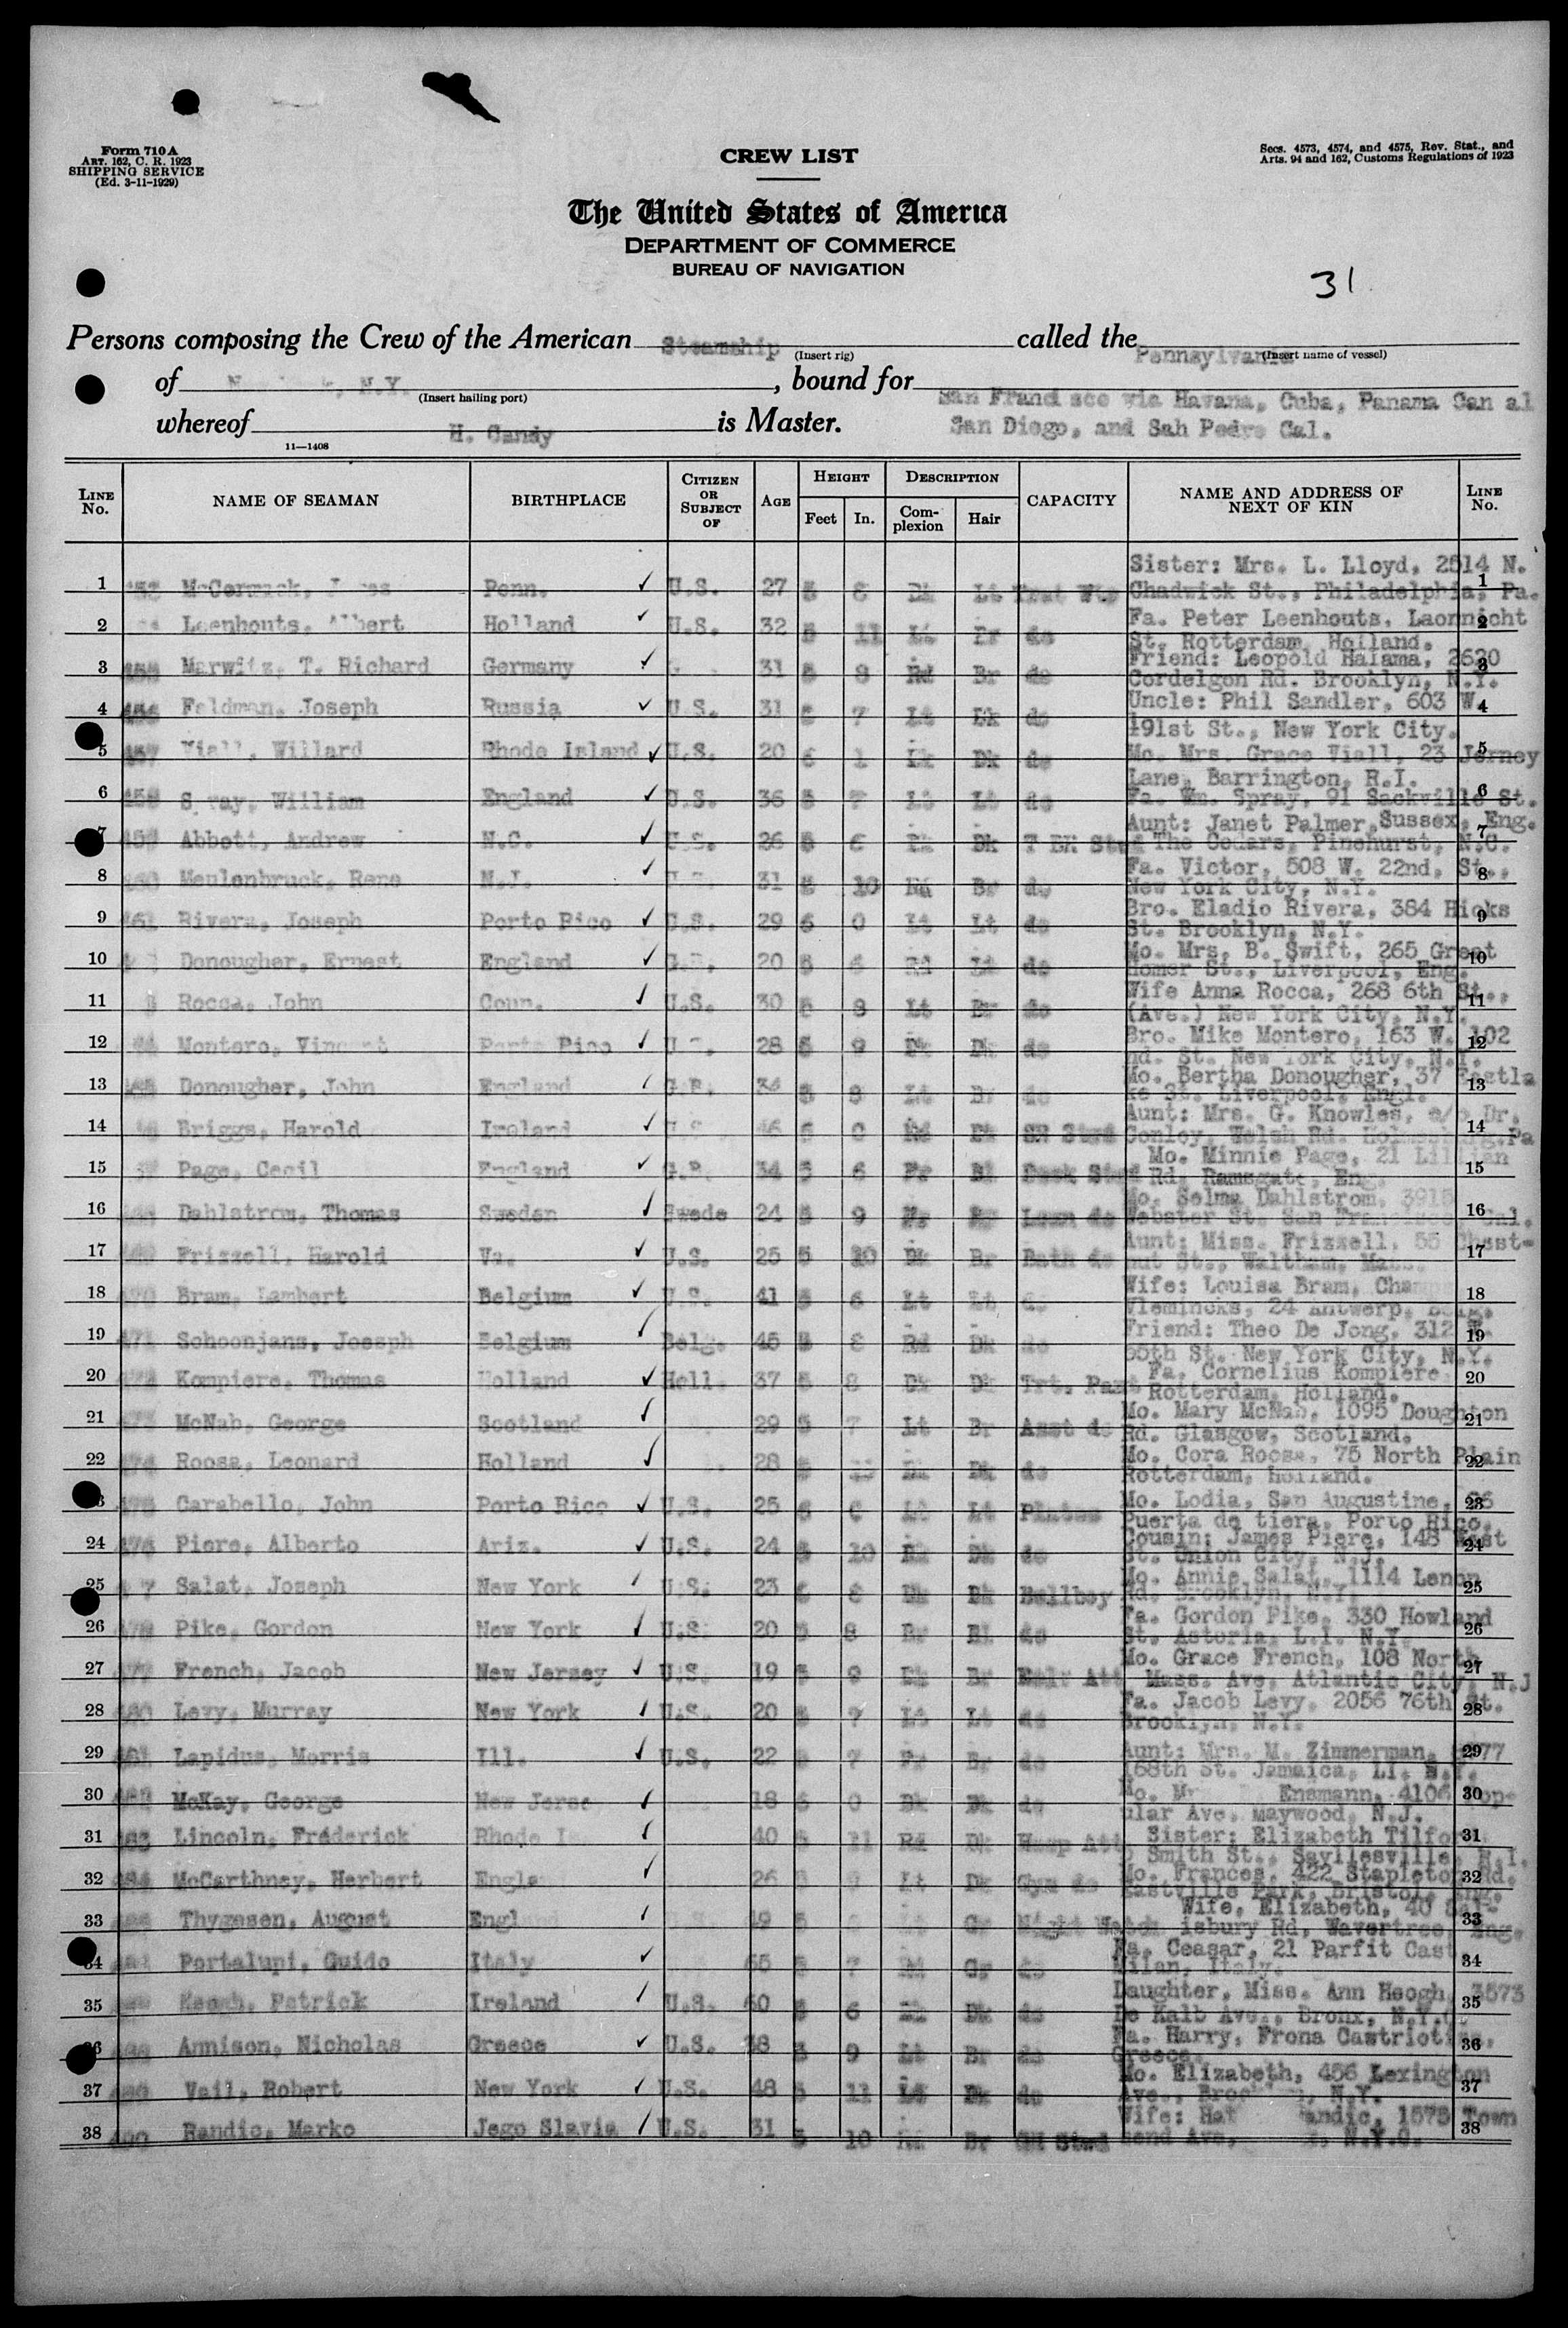 Form 710 A
ART. 162, C. R. 1923
SHIPPING SERVICE
(Ed. 3-11-1929)
CREW LIST
Secs. 4573, 4574, and 4575, Rev. Stat., and
Arts. 94 and 162, Customs Regulations of 1923
The United States of America
DEPARTMENT OF COMMERCE
BUREAU OF NAVIGATION
31
Persons composing the Crew of the American Steamship called the Pennsylvania
(Insert rig) (Insert name of vessel)
of N.Y. , bound for San Francisco via Havana, Cuba, Panama Can al
(Insert hailing port)
whereof H. Candy is Master. San Diego, and Sah Pedro Cal.
11—1408
LINE No. NAME OF SEAMAN BIRTHPLACE CITIZEN OR SUBJECT OF AGE HEIGHT Feet In. DESCRIPTION Complexion Hair CAPACITY NAME AND ADDRESS OF NEXT OF KIN LINE No.
Sister: Mrs. L. Lloyd, 2514 N.
1 McCormack, Penn. ✓ U.S. 27 5 8 Dk Lt Chadwick St., Philadelphia, Pa. 1
2 Leenhouts, Albert Holland ✓ U.S. 32 5 11 Lt Br do Fa. Peter Leenhouts, Laonnicht 2
St. Rotterdam, Holland.
3 Marwitz, T. Richard Germany ✓ 31 5 8 Rd Br do Friend: Leopold Halama, 2630 3
Cordelgon Rd. Brooklyn, N.Y.
4 Feldman, Joseph Russia ✓ U.S. 31 5 7 Lt Dk do Uncle: Phil Sandler, 603 W. 4
191st St., New York City.
5 Viall, Willard Rhode Island ✓ U.S. 20 6 1 Dk do Mo. Mrs. Grace Viall, 23 Jerney 5
Lane, Barrington, R.I.
6 William England ✓ U.S. 36 5 7 Lt Lt do Fa. Wm. Spray, 91 Sackville St. 6
Sussex, Eng.
7 Abbott, Andrew N.C. ✓ U.S. 26 5 6 Dk Aunt: Janet Palmer, 7
The Cedars, Pinehurst, N.C.
8 Meulenbruck, Rene N.J. ✓ 31 5 10 Rd Br do Fa. Victor, 508 W. 22nd, St., 8
New York City, N.Y.
9 Rivera, Joseph Porto Rico ✓ U.S. 29 6 0 Lt Lt do Bro. Eladio Rivera, 384 Hicks 9
St. Brooklyn, N.Y.
10 Donougher, Ernest England ✓ G.B. 20 5 6 Rd Lt do Mo. Mrs. B. Swift, 265 Great 10
Homer St., Liverpool, Eng.
11 Rocca, John Conn. ✓ U.S. 30 5 8 Lt Br do Wife Anna Rocca, 268 6th St., 11
(Ave.) New York City, N.Y.
12 Montero, Vincent Porto Rico ✓ 28 5 9 Dk Dk do Bro. Mike Montero, 163 W. 102 12
nd. St. New York City, N.Y.
13 Donougher, John England ✓ G.B. 34 5 8 Lt Br do Mo. Bertha Donougher, 37 Eastla 13
ke St. Liverpool, Engl.
14 Briggs, Harold Ireland ✓ 46 Rd Dk Aunt: Mrs. G. Knowles, c/o Dr. 14
Comley, Welsh Rd. Pa
15 Page, Cecil England ✓ G.B. 34 5 6 Deck Mo. Minnie Page, 21 Lillian 15
Rd. Ramsgate, Eng.
16 Dahlstrom, Thomas Sweden ✓ Swede 24 5 9 do Mo. Selma Dahlstrom, 3915 16
Webster St. San Cal.
17 Frizzell, Harold Va. ✓ U.S. 25 5 10 Dk Br Bath do Aunt: Miss. Frizzell, 55 Chest- 17
nut St., Waltham,
18 Bram, Lambert Belgium ✓ U.S. 41 5 6 Lt Lt do Wife: Louisa Bram, 18
Vlemincks, 24 Antwerp,
19 Schoonjans, Joesph Belgium ✓ Belg. 45 5 8 Rd Dk do Friend: Theo De Jong, 312 19
55th St. New York City, N.Y.
20 Kompiere, Thomas Holland ✓ Holl. 37 5 8 Fa. Cornelius Kompiere, 20
Rotterdam, Holland.
21 McNab, George Scotland ✓ 29 5 7 Lt Br Asst do Mo. Mary McNab, 1095 Doughton 21
Rd. Glasgow, Scotland.
22 Roosa, Leonard Holland ✓ 28 5 Dk do Mo. Cora Roosa, 75 North Plain 22
Rotterdam, Holland.
23 Carabello, John Porto Rico ✓ U.S. 25 Lt Mo. Lodia, San Augustine, 23
Puerta de tiera, Porto Rico.
24 Piere, Alberto Ariz. ✓ U.S. 24 5 10 Dk do Cousin: James Piere, 148 West 24
St. Union City, N.J.
25 Salat, Joseph New York ✓ U.S. 23 8 Dk Dk Bellboy Mo. Annie Salat, 1114 Lenon 25
Rd. Brooklyn, N.Y.
26 Pike, Gordon New York ✓ U.S. 20 5 8 Br Bl do Fa. Gordon Pike, 330 Howland 26
St. Astoria, L.I. N.Y.
27 French, Jacob New Jersey ✓ U.S. 19 5 9 Dk Br Mo. Grace French, 108 North 27
Mass. Ave, Atlantic City, N.J
28 Levy, Murray New York ✓ U.S. 20 5 7 Lt Lt do Fa. Jacob Levy, 2056 76th St. 28
Brooklyn, N.Y.
29 Lapidus, Morris Ill. ✓ U.S. 22 5 7 Br do Aunt: Mrs. M. Zimmerman, 29
168th St. Jamaica, LI. N.Y.
30 McKay, George New Jerse ✓ 18 6 0 Dk Dk do Mo. Ensmann, 4106 30
ular Ave, Maywood, N.J.
31 Lincoln, Fréderick Rhode ✓ 40 5 11 Rd Dk Sister: Elizabeth 31
Smith St., Sayllesville, R.I.
32 McCarthney, Herbert ✓ 26 Lt Dk Gym do Mo. Frances, 422 Stapleton Rd. 32
Eastville Park, Bristol, Eng.
33 Thygesen, August Engl ✓ 49 5 Gr Night Wife, Elizabeth, 40 33
isbury Rd, Wavertree, Eng.
34 Portalupi, Guido Italy ✓ 65 5 7 Gr do Fa. Ceasar, 21 Parfit Cast 34
Milan, Italy.
35 Patrick Ireland ✓ U.S. 60 5 6 Dk do Daughter, Miss. Ann Heogh, 3573 35
De Kalb Ave., Bronx, N.Y.C.
36 Annison, Nicholas Greece ✓ U.S. 38 5 9 Lt Br do Fa. Harry, Frona 36
Greece.
37 Vail, Robert New York ✓ U.S. 48 5 11 Lt Dk do Mo. Elizabeth, 456 Lexington 37
Ave., N.Y.
38 Randic, Marko Jego Slavia ✓ U.S. 31 5 10 Rd Br Wife: 1575 Town 38
send Ave, N.Y.C.